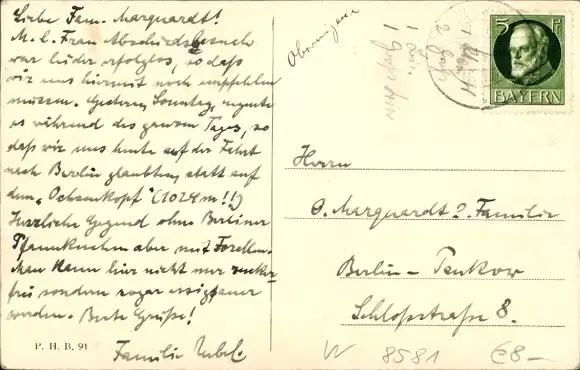 Liebe Fam. Marquardt!
M. l. Frau Abschiedsbesuch
war leider erfolglos, so daß
wir uns hiermit noch empfehlen
müssen. Gestern, Sonntag, regnete
es während des ganzen Tages, so
daß wir uns heute auf der Fahrt
nach Berlin glaubten, statt auf
dem "Ochsenkopf" (1024 m!!)
Herrliche Gegend ohne Berliner
Pfannkuchen aber mit Forellen.
Man kann hier nicht nur zucker-
frei sondern sogar essigsauer
werden. Beste Grüße!
Familie
P. H. B. 91
5 Pf
BAYERN
Herrn
O. Marquardt & Familie
Berlin - Pankow
Schloßstraße 8.
W 8581 €8-